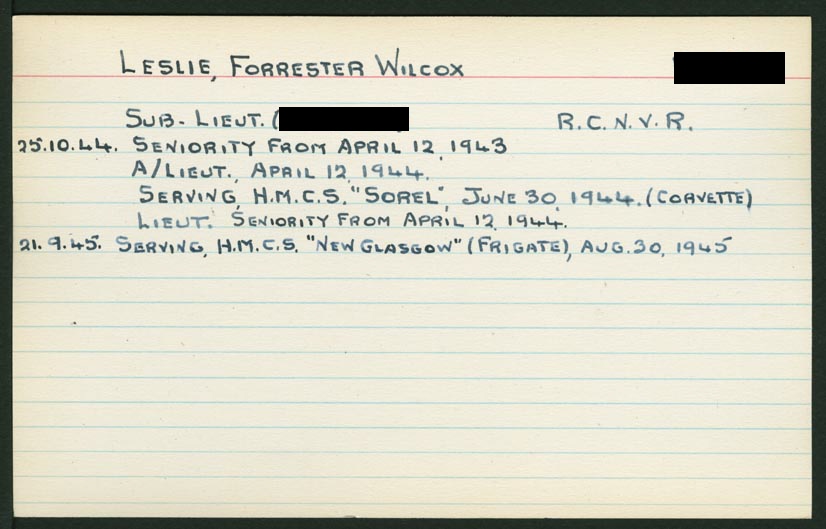 LESLIE, FORRESTER WILCOX
SUB-LIEUT. ( R.C.N.V.R.
25.10.44. SENIORITY FROM APRIL 12, 1943
A/LIEUT., APRIL 12, 1944.
SERVING, H.M.C.S. "SOREL", JUNE 30, 1944. (CORVETTE)
LIEUT. SENIORITY FROM APRIL 12, 1944.
21.9.45. SERVING, H.M.C.S. "NEW GLASGOW" (FRIGATE), AUG. 30, 1945